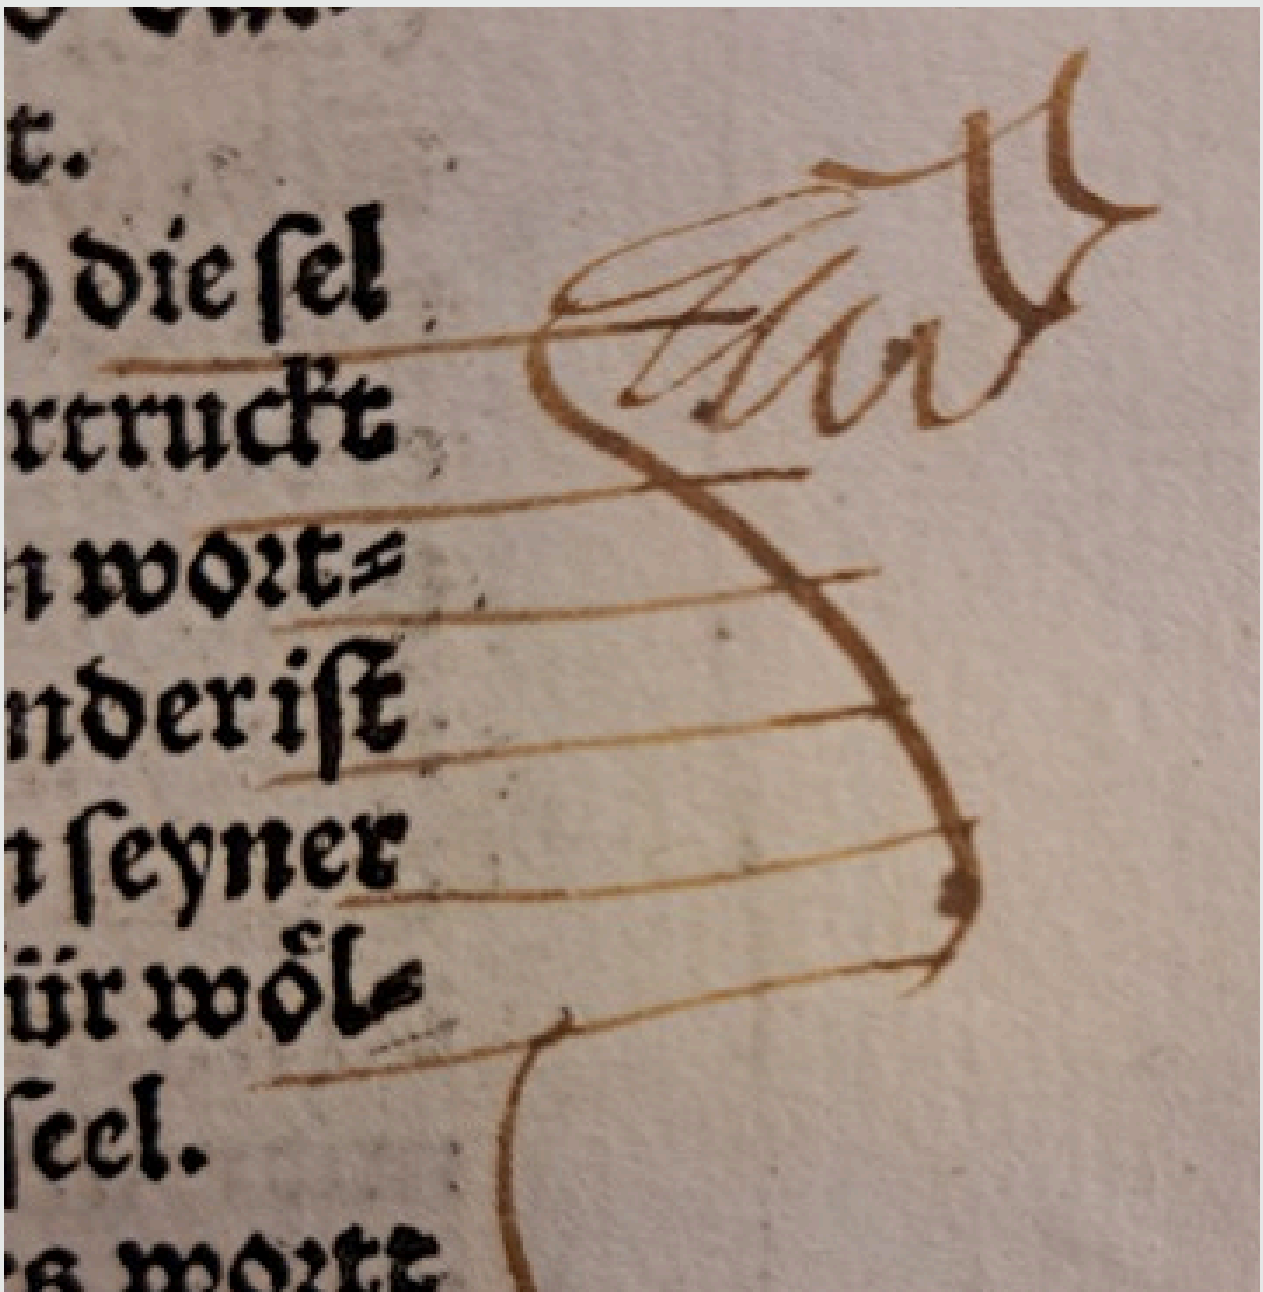 t.
die sel
rtruckt
n wort⸗
nder ist
n seyner
ür woͤl⸗
seel.
s wortt